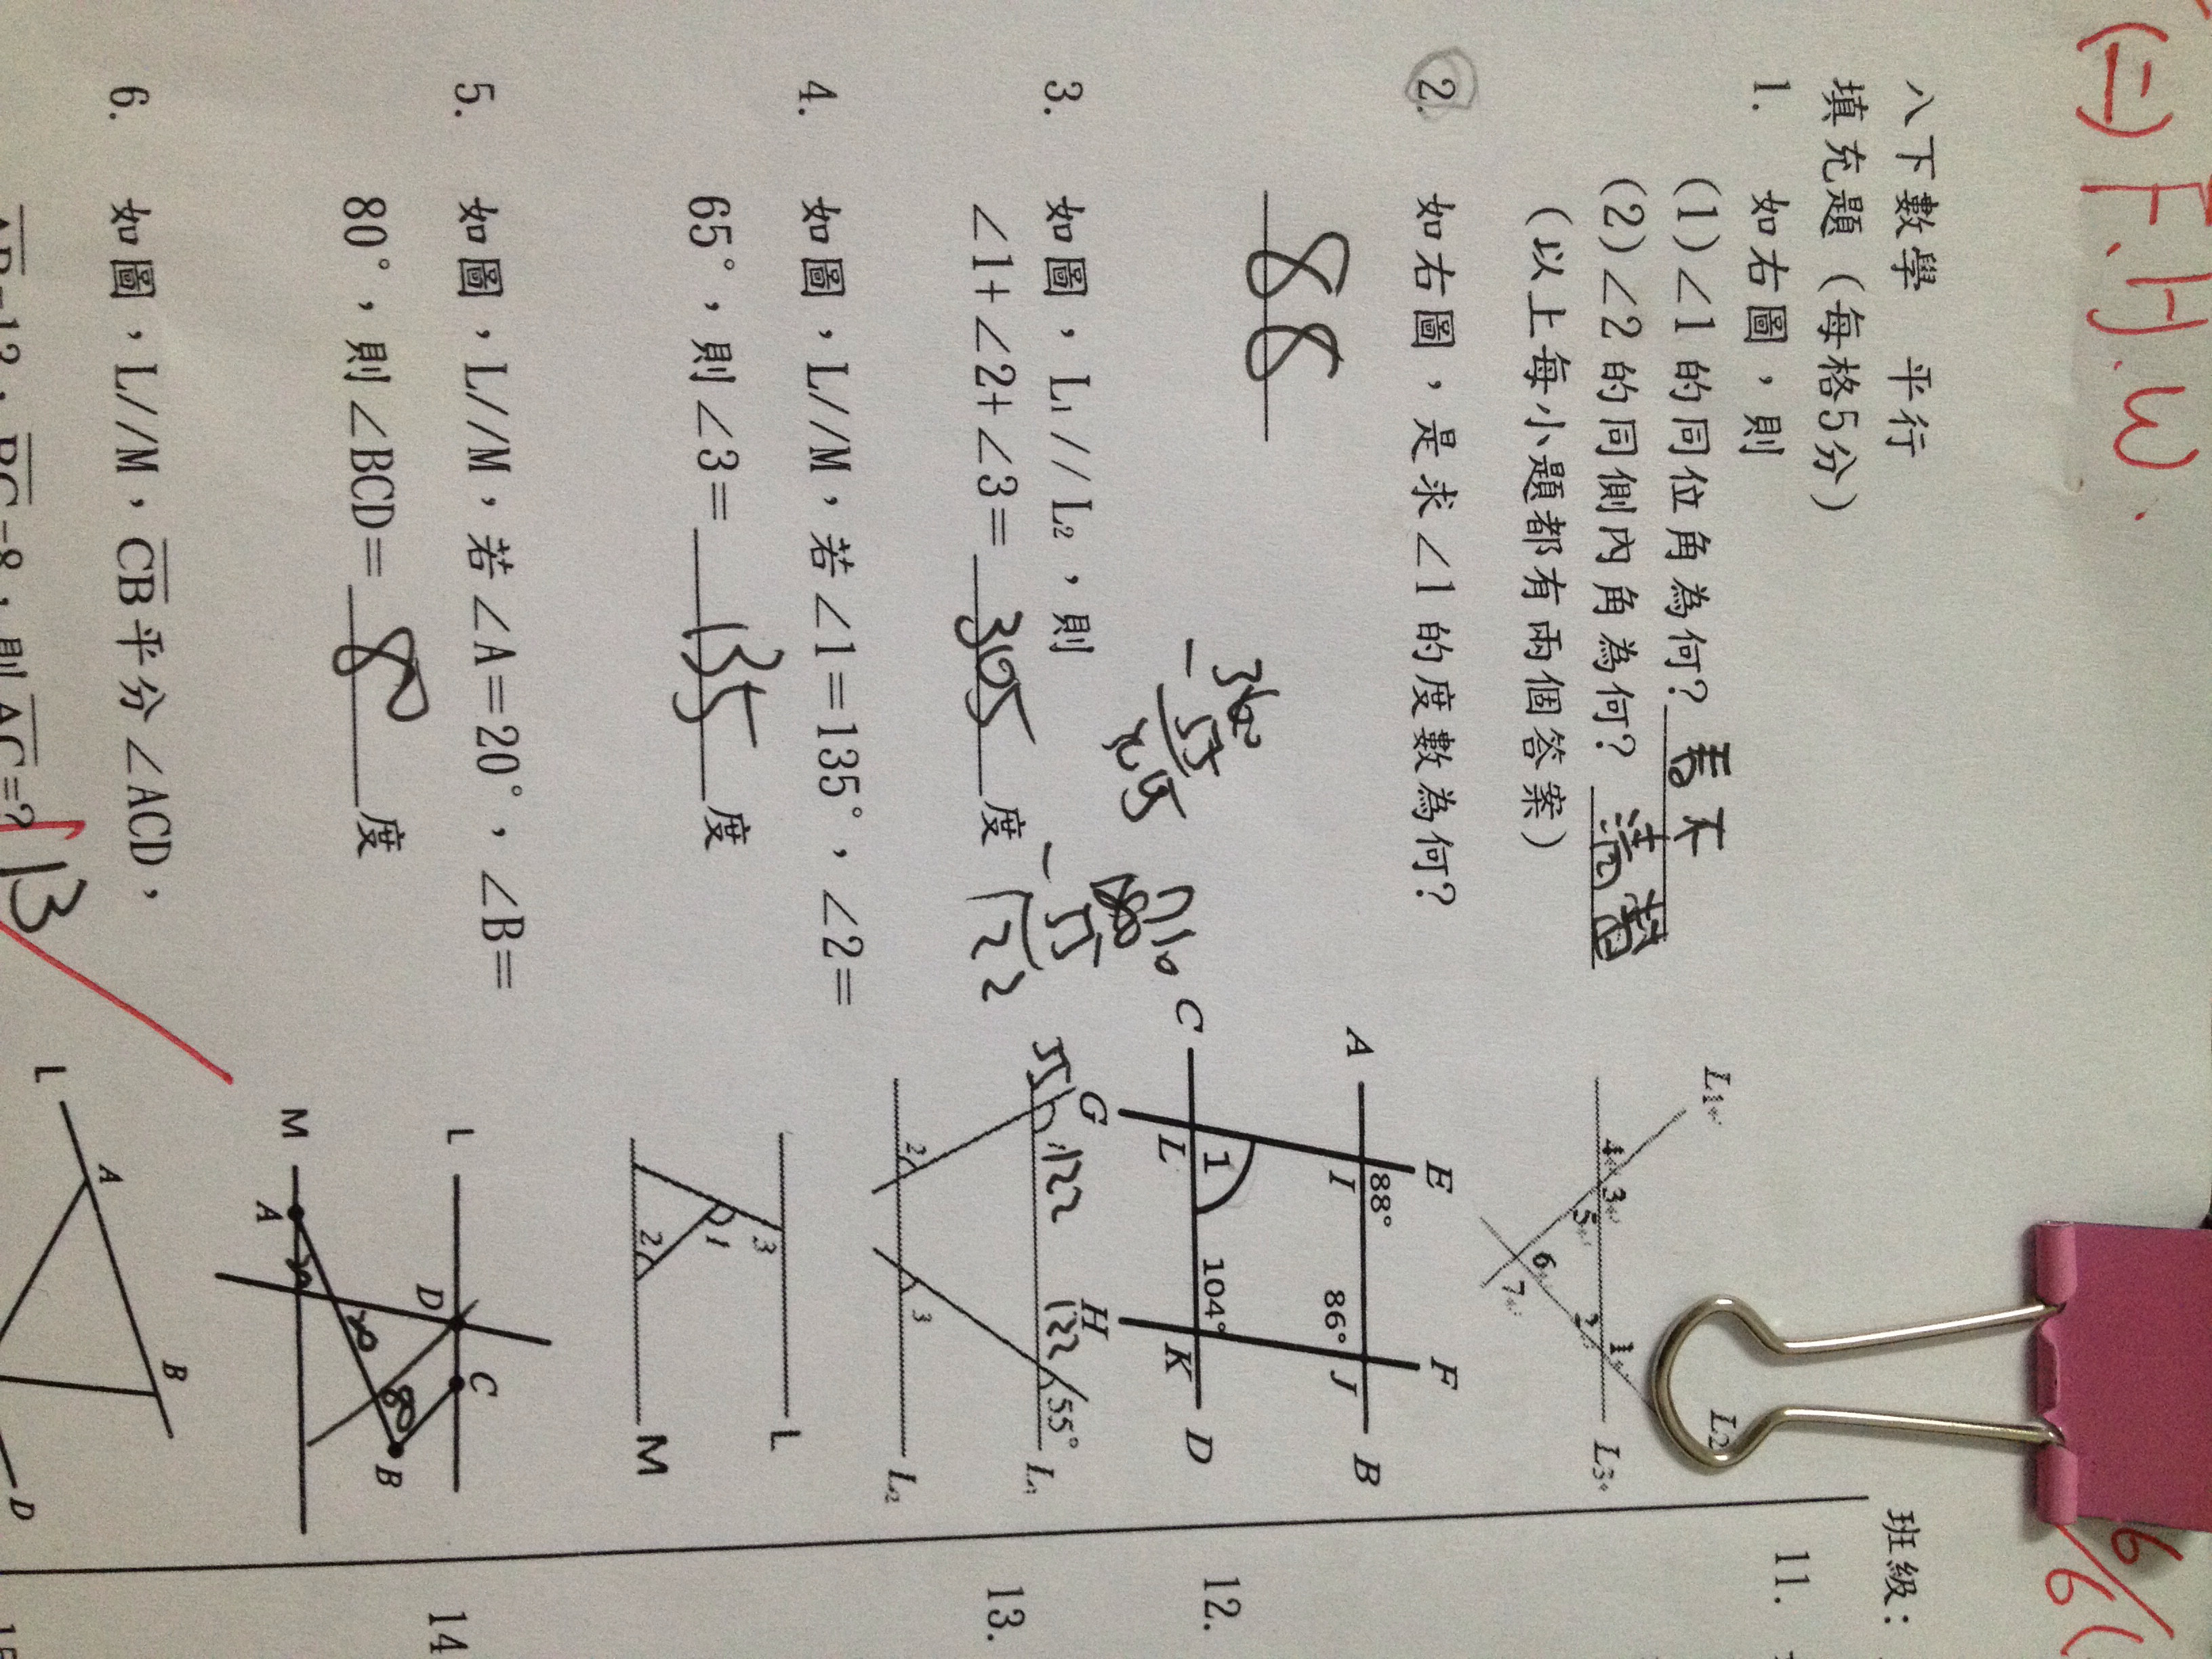 (二) F.H.W.
八下數學 平行
班級:
填充題(每格5分)
1. 如右圖,則
(1)∠1的同位角為何? 看不
(2)∠2的同側內角為何? 清楚
(以上每小題都有兩個答案)
L1
L2
L3
4
3
5
6
7
2
1
2. 如右圖,是求∠1的度數為何?
88
A
B
C
D
E
F
G
H
I
J
K
L
88°
86°
104°
1
3. 如圖,L1//L2,則
∠1+∠2+∠3= 305 度
360
- 55
180
- 55
55
122
122
55°
L1
L2
2
3
4. 如圖,L//M,若∠1=135°,∠2=
65°,則∠3= 135 度
L
M
1
2
3
5. 如圖,L//M,若∠A=20°,∠B=
80°,則∠BCD= 80 度
L
M
A
B
C
D
20
80
6. 如圖,L//M,CB平分∠ACD,
AB=12,BC=8,則AC=? 13
L
A
B
D
11.
12.
13.
14
15